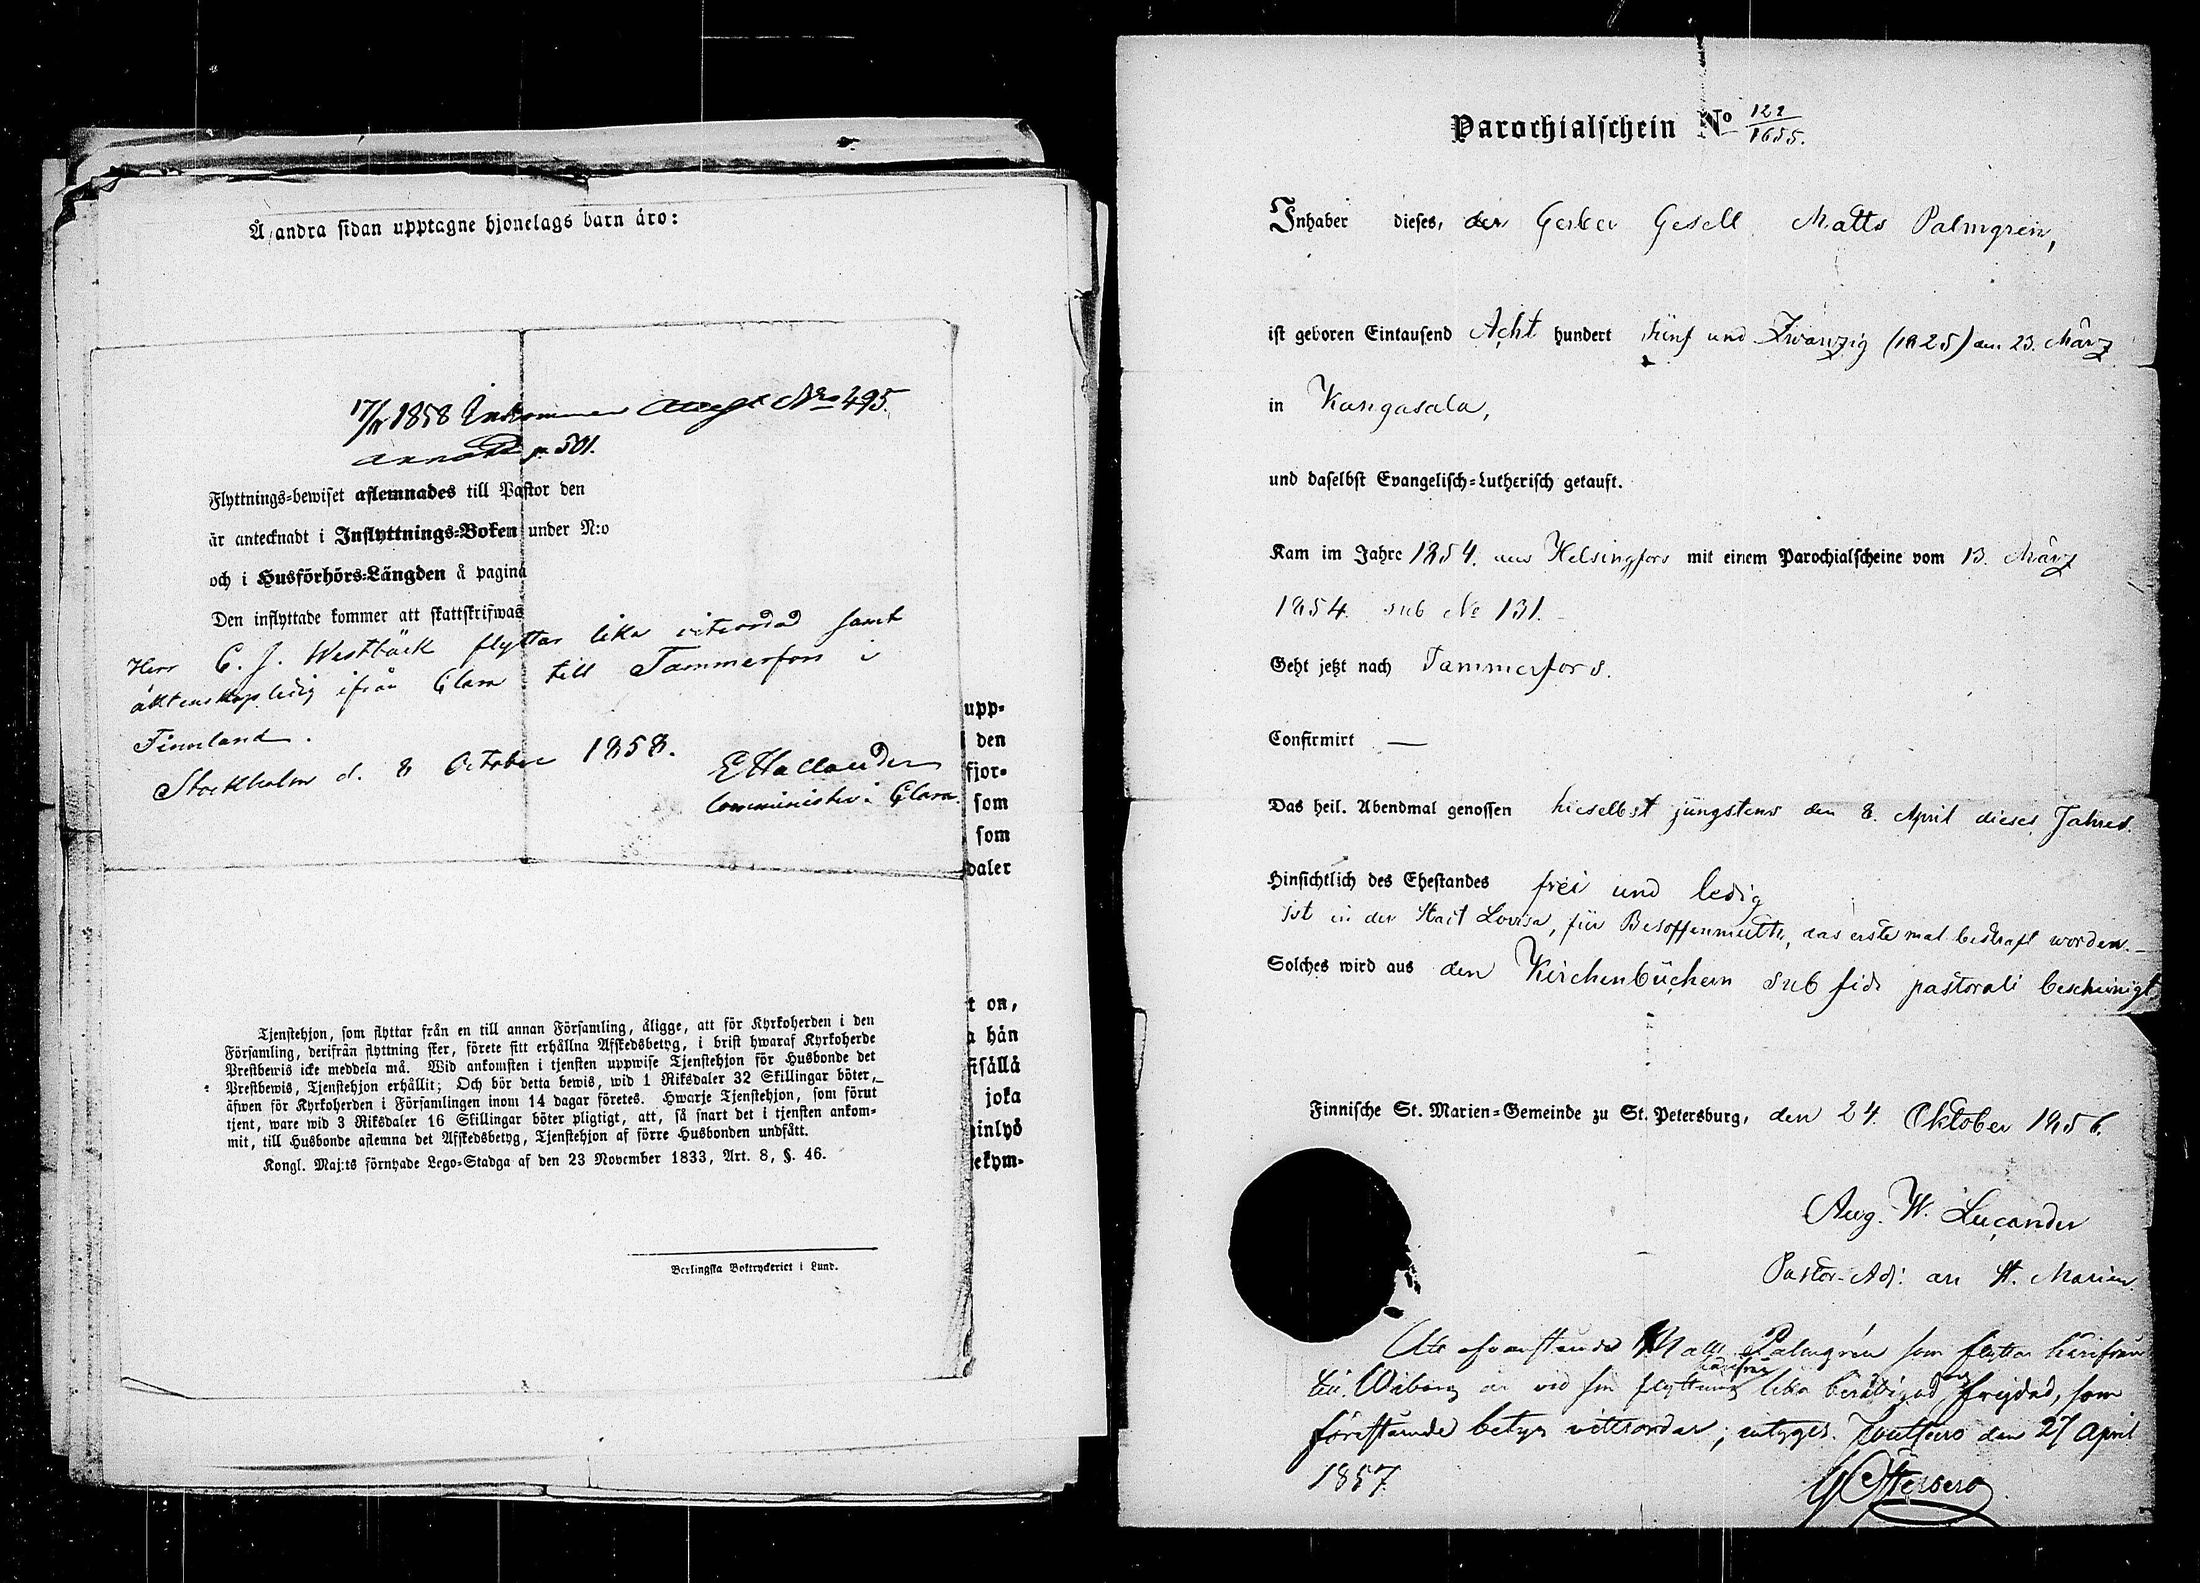 Å andra sidan upptagne hjonelags barn äro:
17/11 1858 Inkommen N:o 495.
p. 501.
Flyttnings-bewiset aflemnades till Pastor den
är antecknadt i Inflyttnings-Boken under N:o
och i Husförhörs-Längden å pagina
Den inflyttade kommer att skattskrifwas
Herr C. J. Westbäck flyttar lika vitsordad samt
äktenskapsledig ifrån Clara till Tammerfors i
Finnland.
Stockholm d. 8 October 1858.
E Hallander
Comminister i Clara.
upp-
den
fjor-
som
som
daler
t on,
a hän
fisällä
joka
ninlyö
ekym-
Tjenstehjon, som flyttar från en till annan Församling, åligge, att för Kyrkoherden i den
Församling, derifrån flyttning sker, förete sitt erhållna Afskedsbetyg, i brist hwaraf Kyrkoherde
Prestbewis icke meddela må. Wid ankomsten i tjensten uppwise Tjenstehjon för Husbonde det
Prestbewis, Tjenstehjon erhållit; Och bör detta bewis, wid 1 Riksdaler 32 Skillingar böter,
äfwen för Kyrkoherden i Församlingen inom 14 dagar företes. Hwarje Tjenstehjon, som förut
tjent, ware wid 3 Riksdaler 16 Skillingar böter pligtigt, att, så snart det i tjensten ankom-
mit, till Husbonde aflemna det Afskedsbetyg, Tjenstehjon af förre Husbonden undfått.
Kongl. Maj:ts förnyade Lego-Stadga af den 23 November 1833, Art. 8, §. 46.
Berlingska Boktryckeriet i Lund.
Parochialschein No 122/1655.
Inhaber dieses, der Gerber Gesell Matts Palmgren,
ist geboren Eintausend Acht hundert Fünf und Zwanzig (1825) am 23. März
in Kangasala,
und daselbst Evangelisch-Lutherisch getauft.
Kam im Jahre 1854. aus Helsingfors mit einem Parochialscheine vom 13. März
1854. sub No 131.
Geht jetzt nach Tammerfors.
Confirmirt —
Das heil. Abendmal genossen hieselbst jüngstens den 8. April dieses Jahres.
Hinsichtlich des Ehestandes frei und ledig
ist in der Stadt Lovisa, für Besoffenmuth, das erste mal bestraft worden.
Solches wird aus den Kirchenbüchern sub fide pastorali bescheinigt
Finnische St. Marien-Gemeinde zu St. Petersburg, den 24. Oktober 1856.
Aug. W. Lucander
Pastor-Adj. an St. Marien.
Att ofvanstående Matts Palmgrén som flyttar härifrån
till Wiborg är vid sin flyttning härifrån lika berättigad frejdad, som
förestående betyg vittsordar; intygas. den 27 April
1857